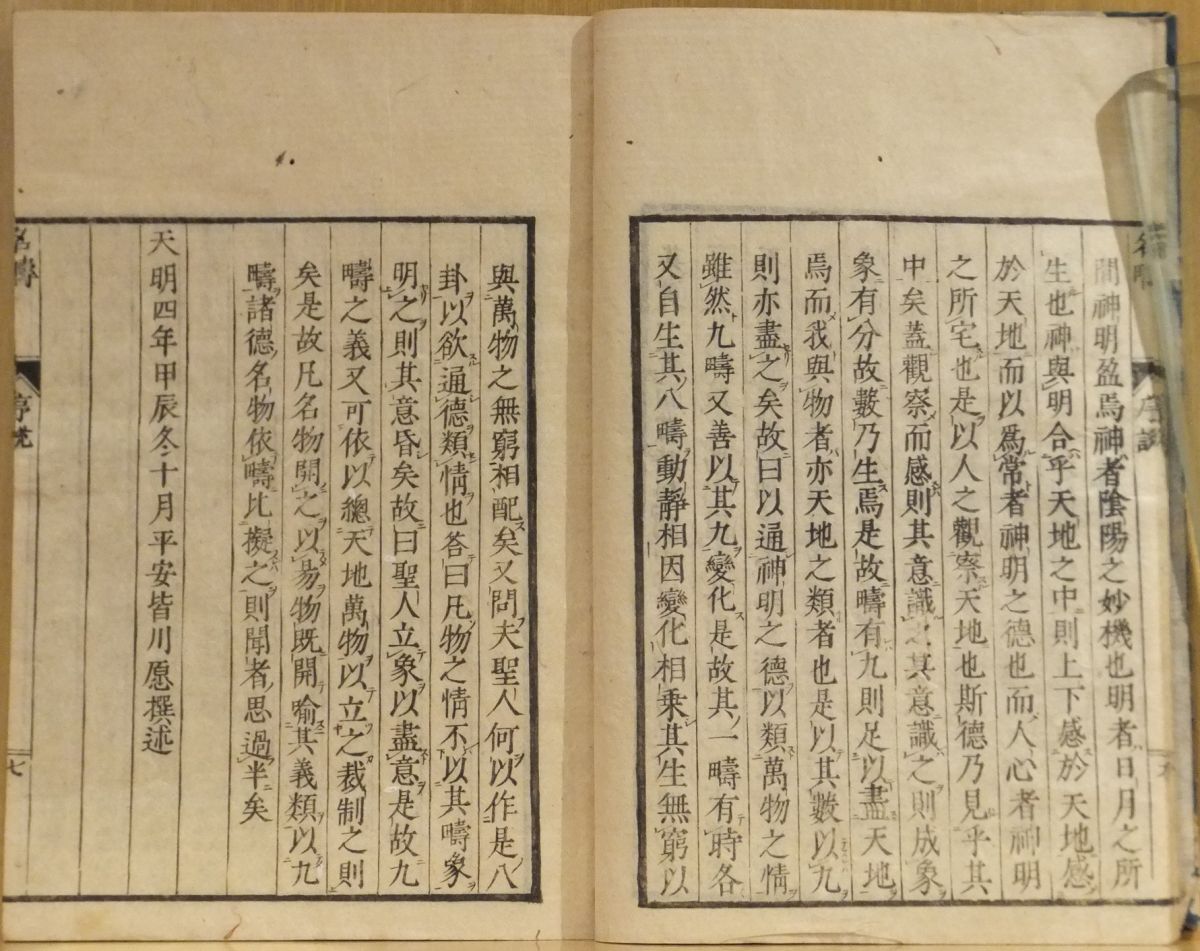 間神明盈焉神者陰陽之妙機也明者日月之所
生也神與明合乎天地之中則上下感於天地感
於天地而以爲常者神明之德也而人心者神明
之所宅也是以人之觀察天地也斯德乃見乎其
中矣蓋觀察而感則其意識之其意識之則成象
象有分故數乃生焉是故疇有九則足以盡天地
焉而我與物者亦天地之類者也是以其數以九
則亦盡之矣故曰以通神明之德以類萬物之情
雖然九疇又善以其九變化是故其一疇有時各
又自生其八疇動靜相因變化相乘其生無窮以
與萬物之無窮相配矣又問夫聖人何以作是八
卦以欲通德類情也答曰凡物之情不以其疇象
明之則其意昏矣故曰聖人立象以盡意是故九
疇之義又可依以總天地萬物以立之裁制之則
矣是故凡名物開之以易物既開喻其義類以九
疇諸德名物依疇比擬之則聞者思過半矣
天明四年甲辰冬十月平安皆川愿撰述
名疇
七